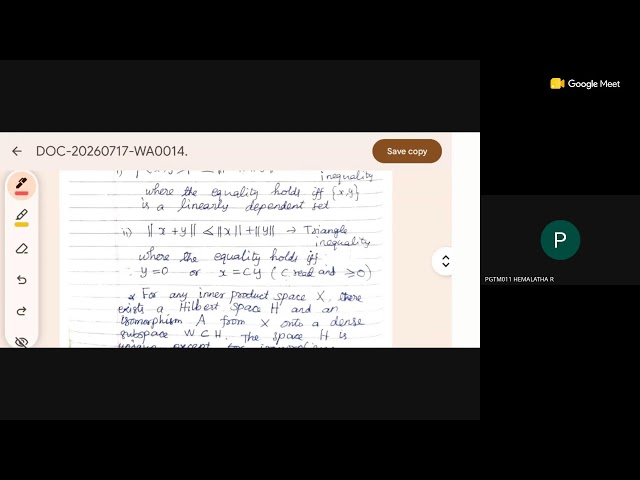 Google Meet
DOC-20260717-WA0014.
Save copy
inequality
where the equality holds iff {x,y}
is a linearly dependent set
ii) ||x+y|| ≤ ||x||+||y|| → Triangle
inequality
where the equality holds iff
y=0 or x=cy (c real and ≥0)
* For any inner product space X, there
exists a Hilbert space H and an
isomorphism A from X onto a dense
subspace W⊂H. The space H is
unique except for
P
PGTM011 HEMALATHA R